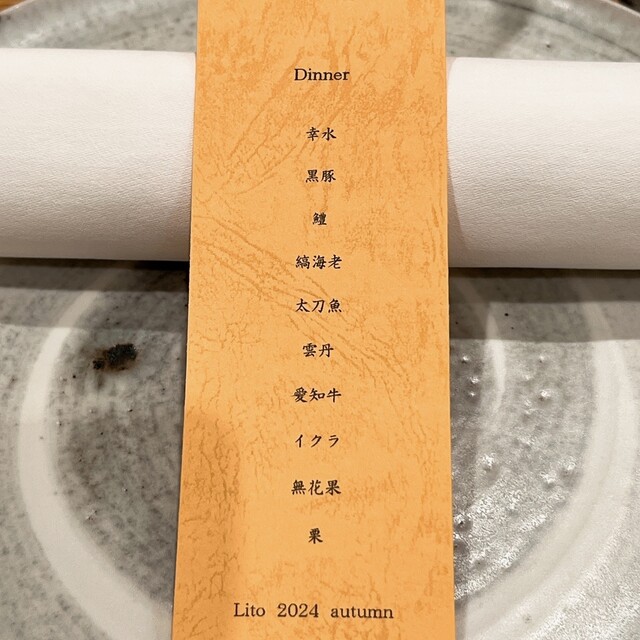 Dinner
幸水
黒豚
鱧
縞海老
太刀魚
雲丹
愛知牛
イクラ
無花果
栗
Lito 2024 autumn